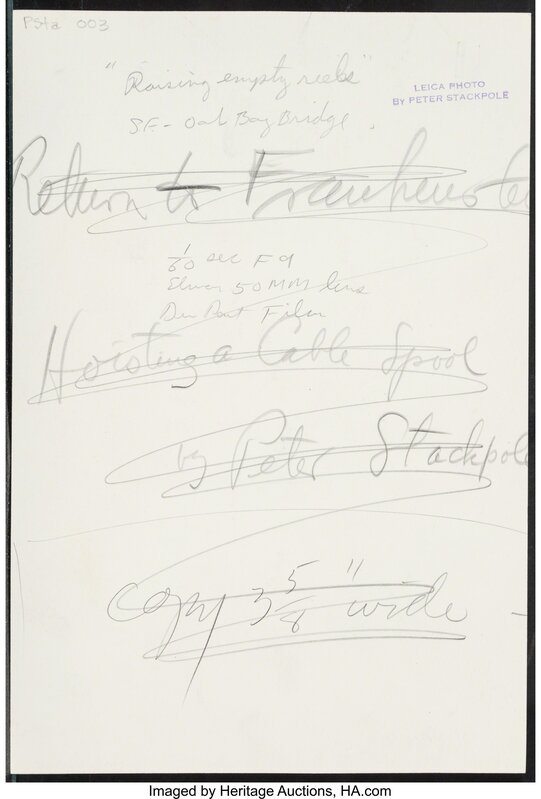 PSta 003
"Raising empty reels"
LEICA PHOTO
BY PETER STACKPOLE
S.F. - Oak Bay Bridge.
Return to
1/60 sec F 9
Elmar 50 MM lens
Du Pont Film
Hoisting a Cable Spool
by Peter Stackpole
copy 3 5/8" wide
Imaged by Heritage Auctions, HA.com